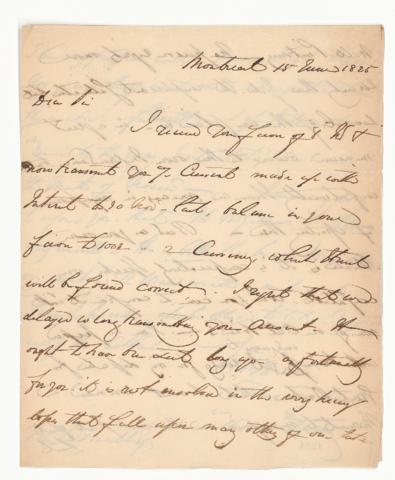 Montreal 15 June 1825
Dear Sir
I received your favor of 8 &
now transmit you Account made up with
Interest to 30 last, balance in your
favor £ 1002 Currency, which I trust
will be found correct. I regret that we
delayed so long transmitting your Account. It
ought to have been sent long ago. unfortunately
for you it is not involved in the very heavy
losses that fall upon many others of our late